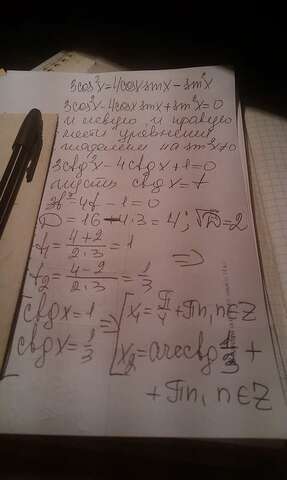 3cos²x=4cosx sinx-sin²x
3cos²x-4cosx sinx+sin²x=0
и левую и правую
части уравнения
поделим на sin²x≠0
3ctg²x-4ctgx+1=0
пусть ctgx=t
3t²-4t-1=0
D=16-4·3=4; √D=2
t₁=(4+2)/(2·3)=1
t₂=(4-2)/(2·3)=1/3 ⇒
[ctgx=1 ⇒ [x₁=π/4+πn, n∈Z
ctgx=1/3 x₂=arcctg 1/3 +
+πn, n∈Z